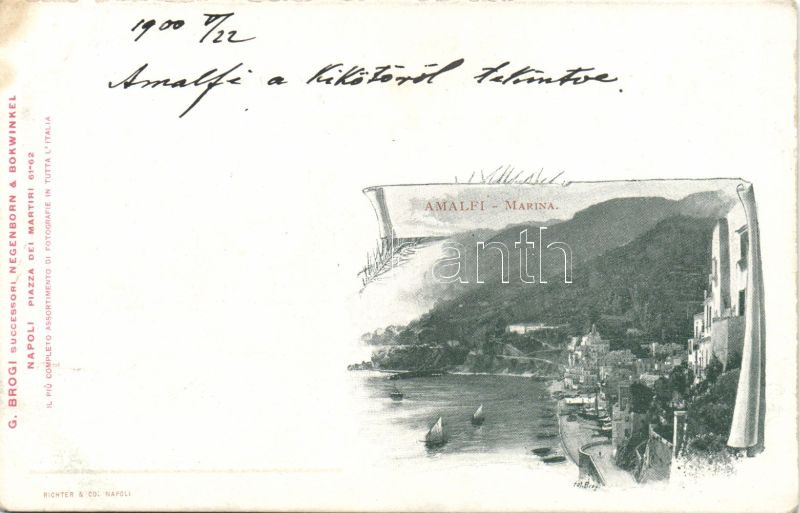 1900 V/22
Amalfi a Kikötöről tekintve.
G. BROGI SUCCESSORI NEGENBORN & BOKWINKEL
NAPOLI PIAZZA DEI MARTIRI 61-62
IL PIÙ COMPLETO ASSORTIMENTO DI FOTOGRAFIE IN TUTTA L'ITALIA
AMALFI - MARINA.
Darabanth
fot. Brogi
RICHTER & CO. NAPOLI